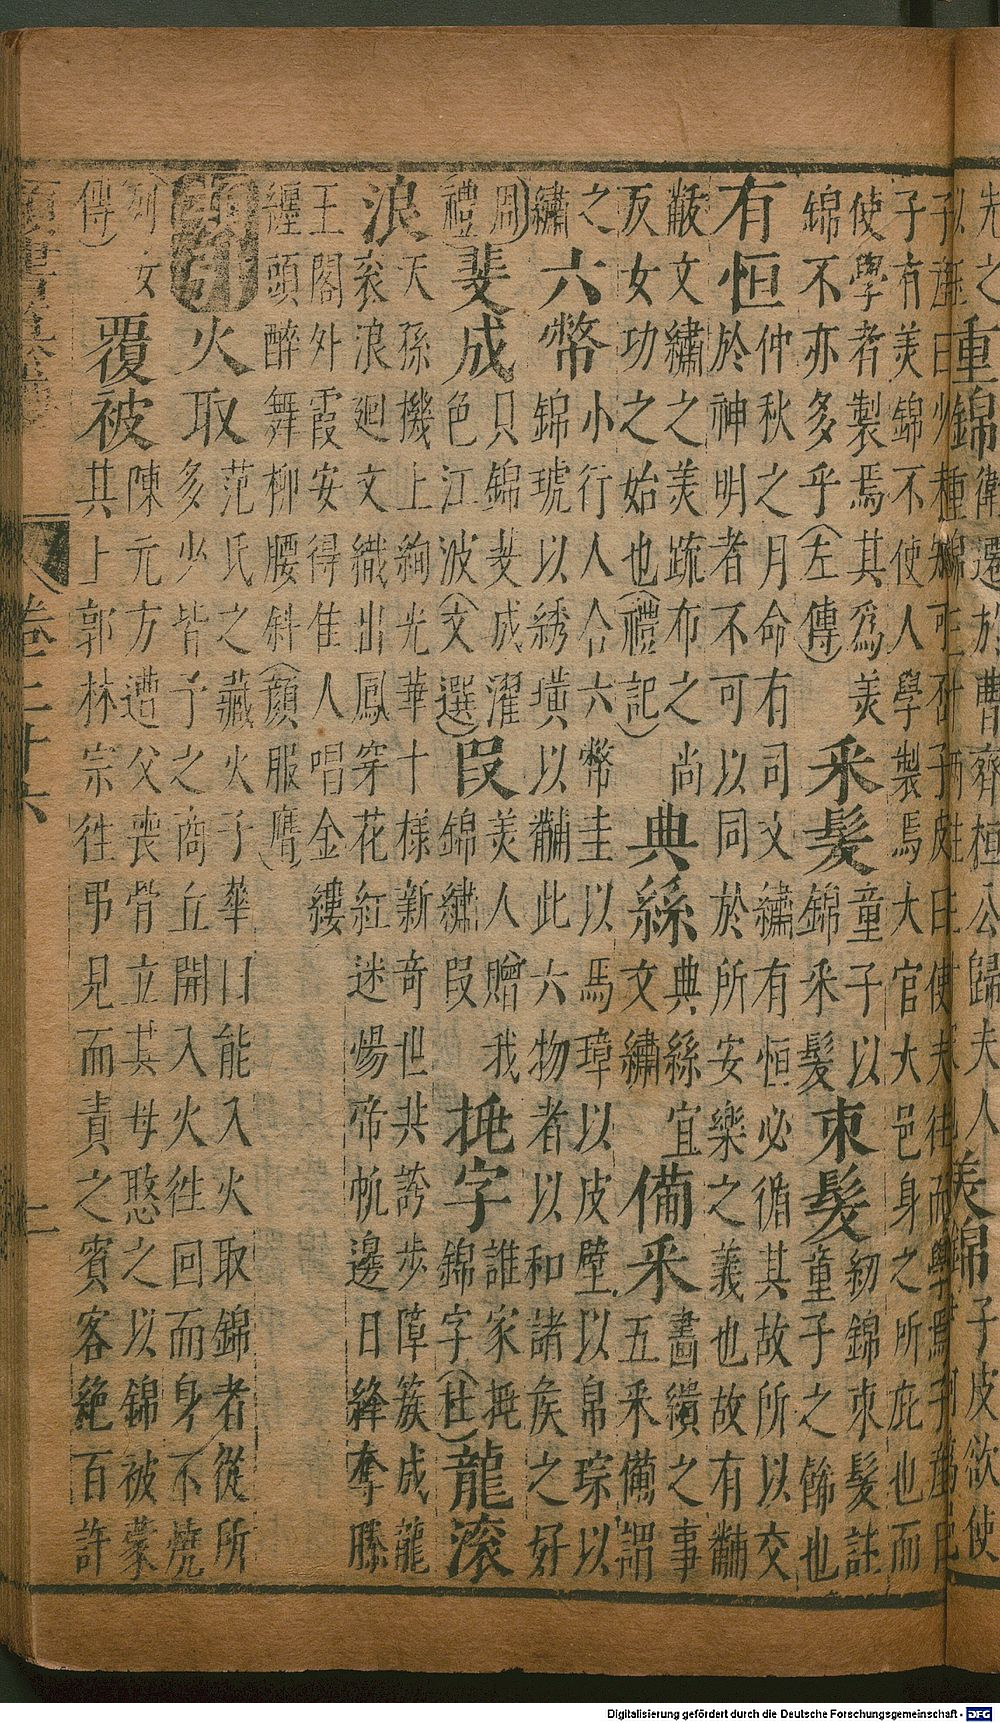 先之 重錦 衛遷於曹齊桓公歸夫人 美錦 子皮欲使
子皮曰使夫往而學焉子產曰
子有美錦不使人學製焉大官大邑身之所庇也而
使學者製焉其爲美 童子以 紒錦束髮註
錦不亦多乎(左傳) 采髮 錦采髮 束髮 童子之餙也
仲秋之月命有司文繡有恒必循其故所以交
有恒 於神明者不可以同於所安樂之義也故有黼
黻文繡之美疏布之尚 典絲宜 畫繢之事
反女功之始也(禮記) 典絲 文繡 備采 五采備謂
之 小行人合六幣圭以馬璋以皮璧以帛琮以
繡 六幣 錦琥以綉璜以黼此六物者以和諸侯之好
周 只錦斐成濯 美人贈我 誰家挑
禮) 斐成 色江波(文選) 段 錦繡段 挑字 錦字(杜) 龍滚
天孫機上絢光華十樣新奇世共誇步障簇成龍
浪 衮浪廻文織出鳳穿花紅迷惕帝帆邊日絳奪滕
王閣外霞安得隹人唱金縷
纏頭醉舞柳腰斜(顏服膺)
范氏之藏火子華曰能入火取錦者從所
火取 多少皆予之商丘開入火徃回而身不燒
列女 陳元方遭父喪骨立其母愍之以錦被蒙
傳) 覆被 其上郭林宗徃弔見而責之賓客絶百許
卷二十六 二
Digitalisierung gefördert durch die Deutsche Forschungsgemeinschaft - DFG